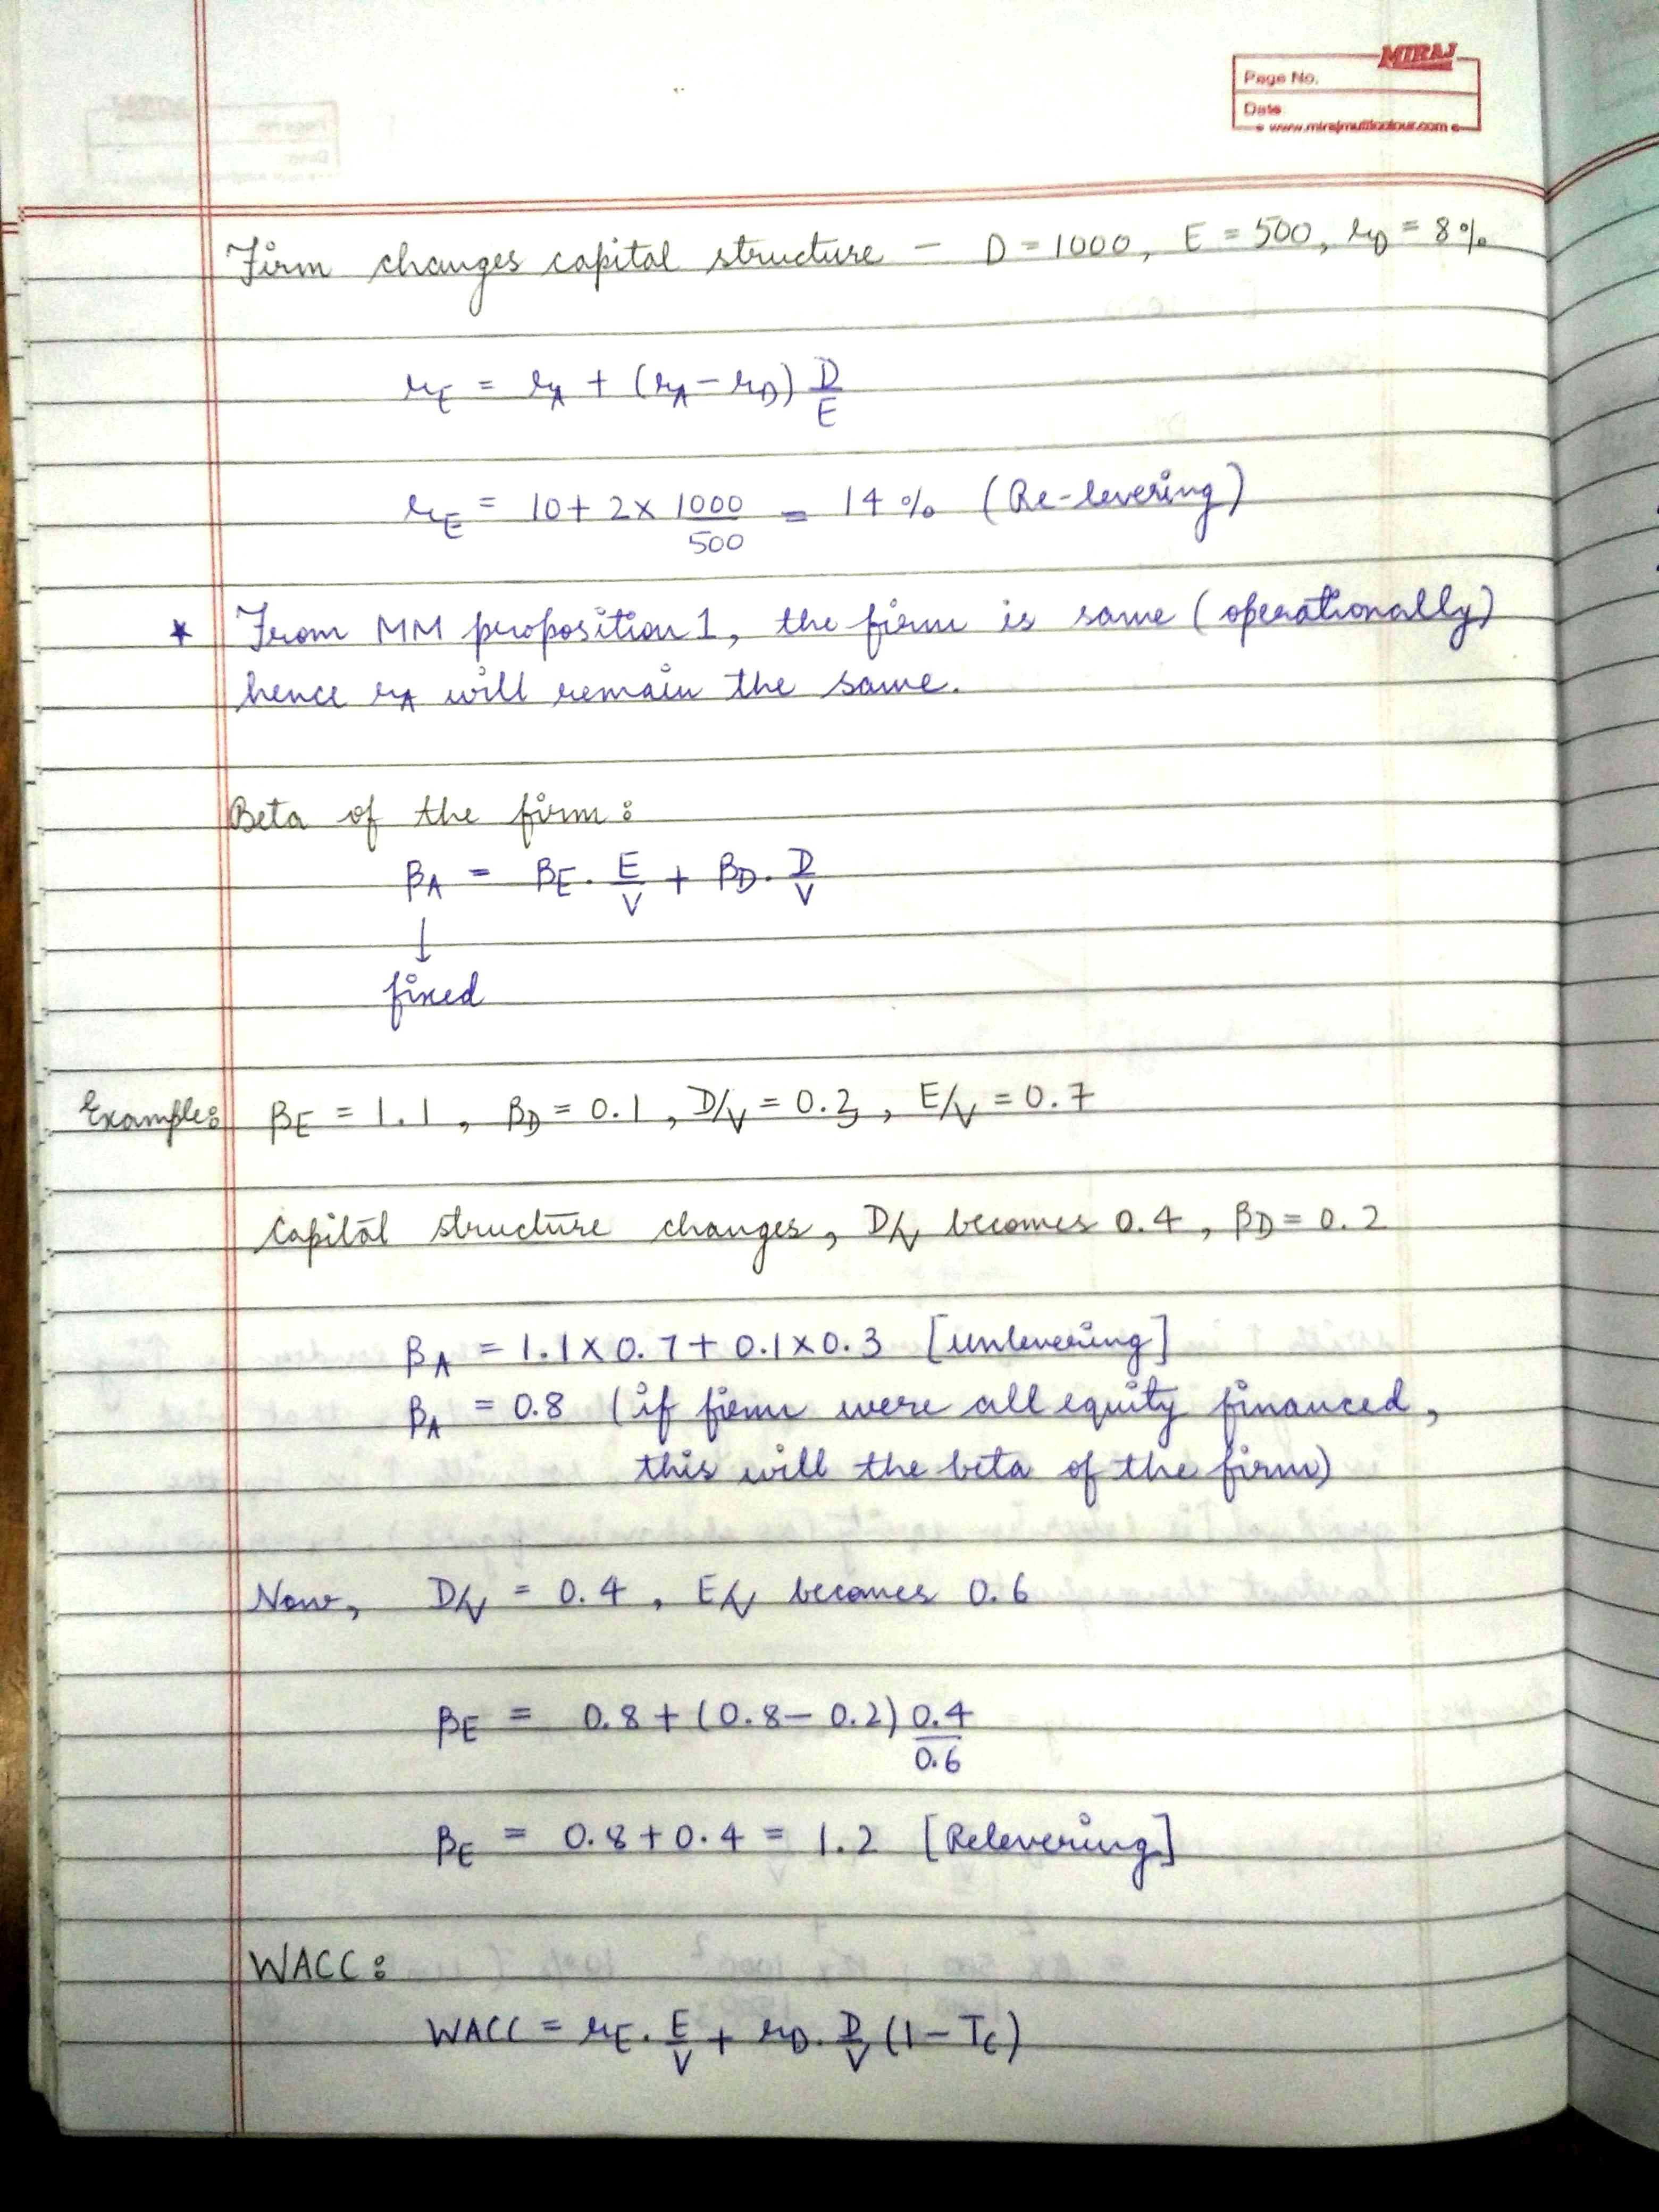 MIRAJ
Page No.
Date
www.mirajmulticolour.com
Firm changes capital structure – D = 1000, E = 500, r_D = 8%
r_E = r_A + (r_A – r_D) D/E
r_E = 10 + 2 x 1000/500 = 14% (Re-levering)
* From MM proposition 1, the firm is same (operationally)
hence r_A will remain the same.
Beta of the firm :
β_A = β_E . E/V + β_D . D/V
↓
fixed
Example: β_E = 1.1 , β_D = 0.1 , D/V = 0.3 , E/V = 0.7
Capital structure changes, D/V becomes 0.4 , β_D = 0.2
β_A = 1.1 x 0.7 + 0.1 x 0.3 [unlevering]
β_A = 0.8 (if firm were all equity financed,
this will the beta of the firm)
Now, D/V = 0.4 , E/V becomes 0.6
β_E = 0.8 + (0.8 – 0.2) 0.4/0.6
β_E = 0.8 + 0.4 = 1.2 [Relevering]
WACC :
WACC = r_E . E/V + r_D . D/V (1 – T_C)